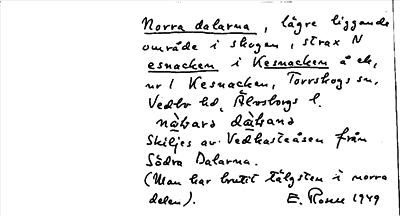 Norra dalarna, lägre liggande
område i skogen, strax N
esnacken i Kesnacken å ek,
nr 1 Kesnacken, Torrskogs sn,
Vedbo hd, Älvsborgs l.
nàhara dàhana
Skiljes av Vedhasteåsen från
Södra Dalarna.
(Man har brutit tälgsten i norra
delen). E. Rosell 1949